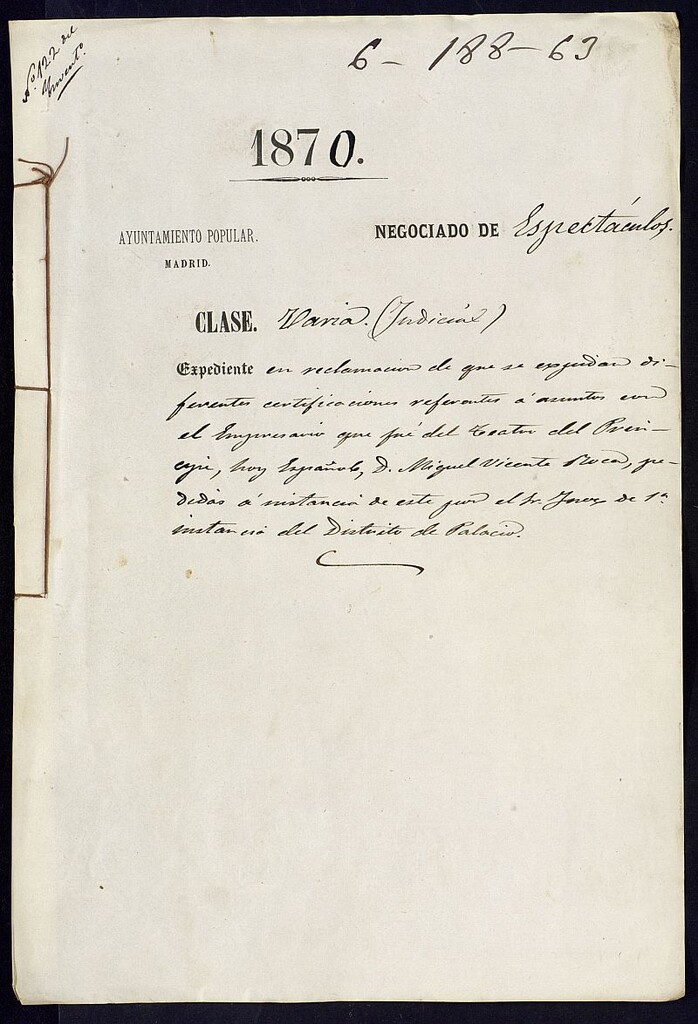 Nº 122 del
Inventº
6 - 188 - 63
1870.
AYUNTAMIENTO POPULAR.
MADRID.
NEGOCIADO DE Espectáculos.
CLASE. Varia. (Judicial)
Expediente en reclamacion de que se expidan di-
ferentes certificaciones referentes á asuntos con
el Empresario que fué del Teatro del Prín-
cipe, hoy Español, D. Miguel Vicente Roca, pe-
didas á instancia de este por el Sr. Juez de 1ª
instancia del Distrito de Palacio.